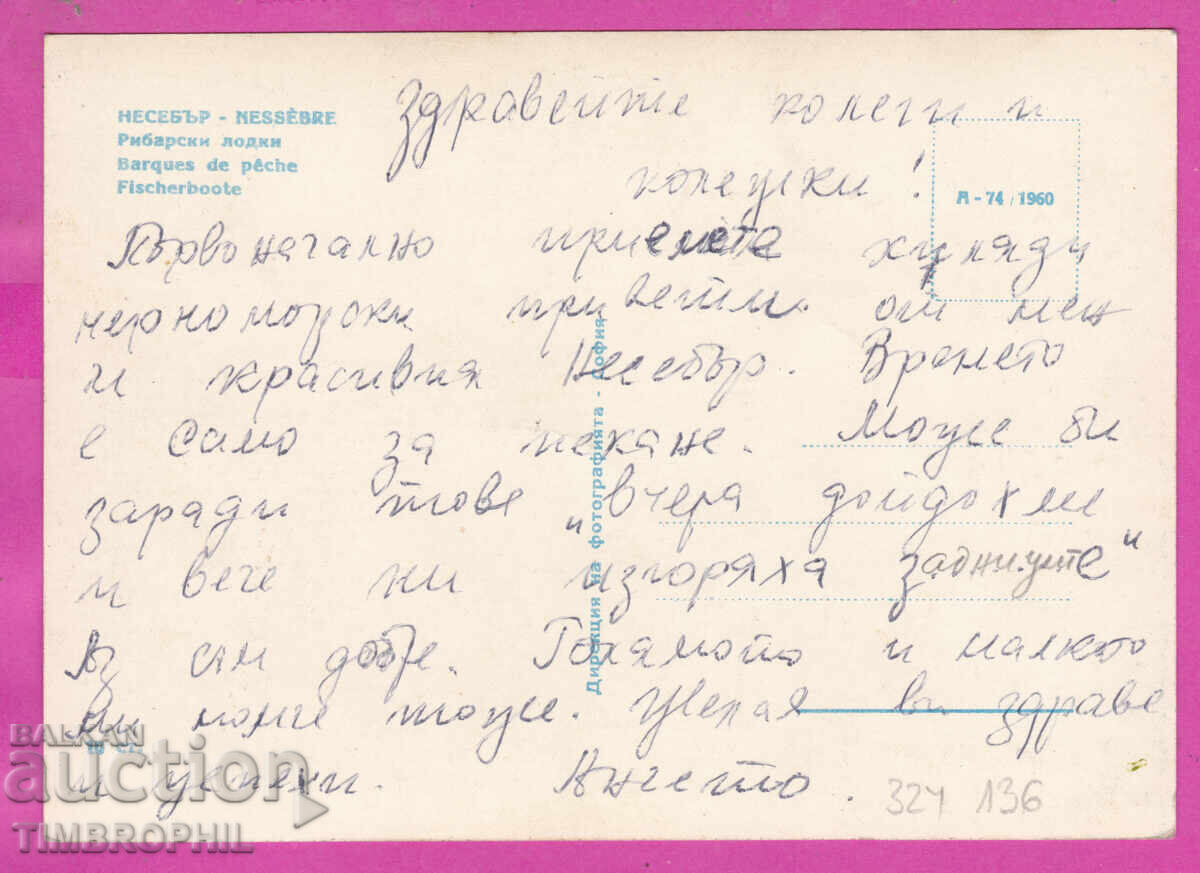 НЕСЕБЪР - NESSÈBRE
Рибарски лодки
Barques de pêche
Fischerboote
А - 74 / 1960
Здравейте колеги и
колежки!
Първоначално приемете хиляди
черноморски привети от мен
и красивия Несебър. Времето
е само за пекане. Може би
заради тове „вчера дойдохме
и вече ни изгоряха задниците"
Аз съм добре. Голямото и малкото
ми момче тоже. Желая ви здраве
и успехи. Анчето.
Дирекция на фотографията - София
324 136
BALKAN
auction
TIMBROPHIL